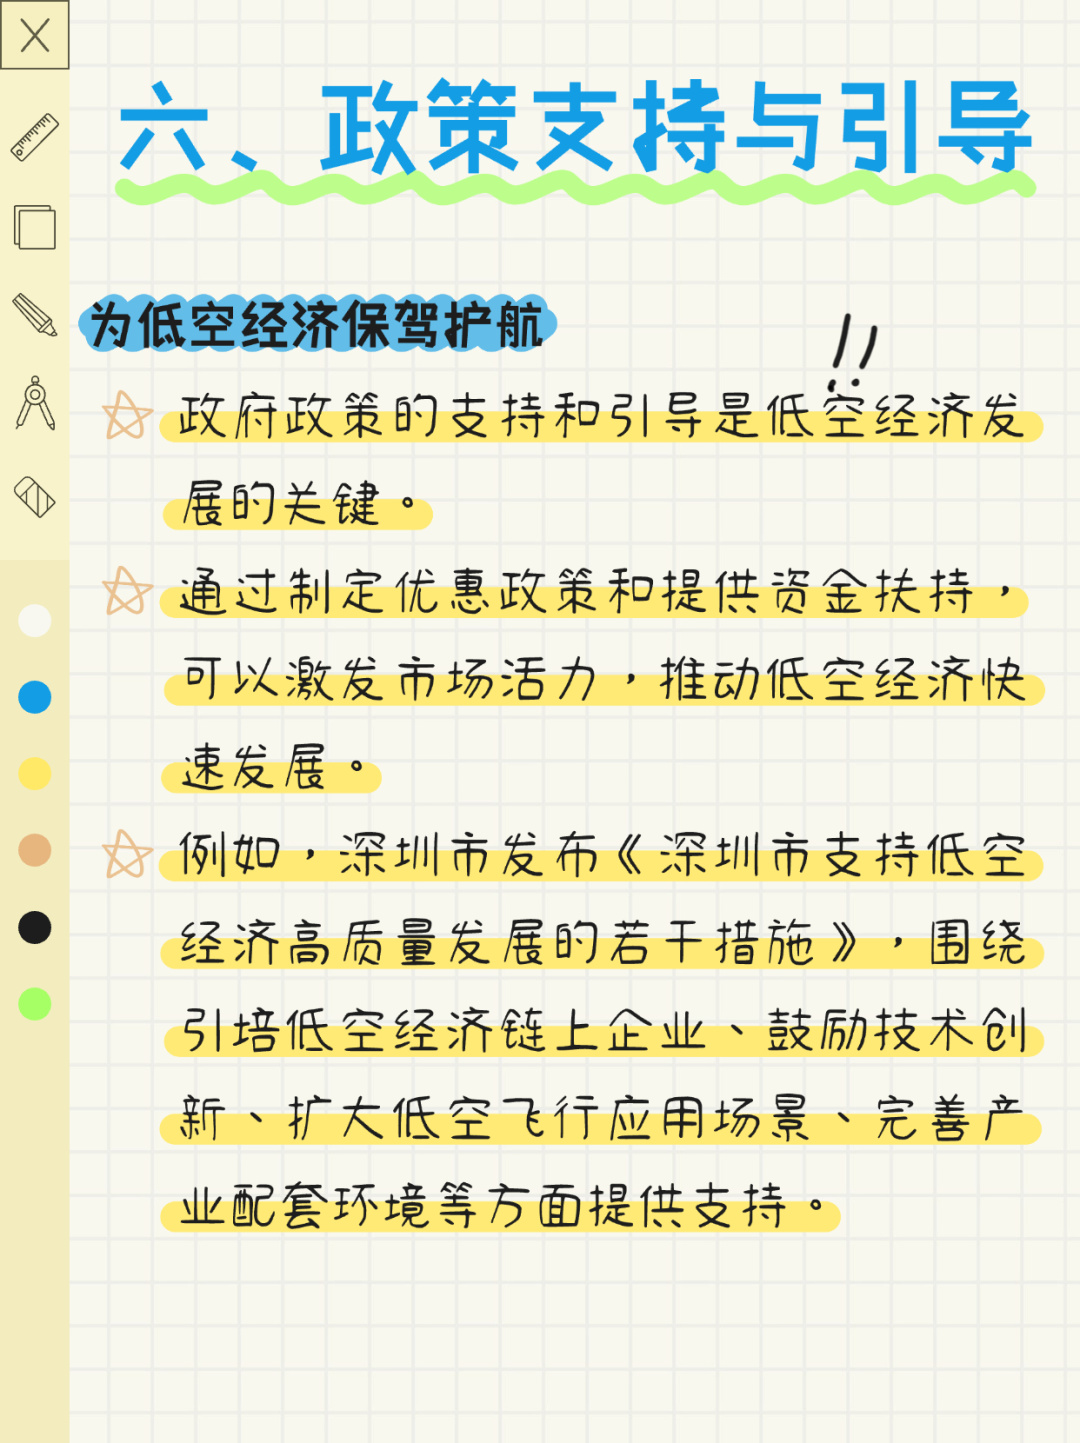 六、政策支持与引导
为低空经济保驾护航
!!
政府政策的支持和引导是低空经济发
展的关键。
通过制定优惠政策和提供资金扶持，
可以激发市场活力，推动低空经济快
速发展。
例如，深圳市发布《深圳市支持低空
经济高质量发展的若干措施》，围绕
引培低空经济链上企业、鼓励技术创
新、扩大低空飞行应用场景、完善产
业配套环境等方面提供支持。